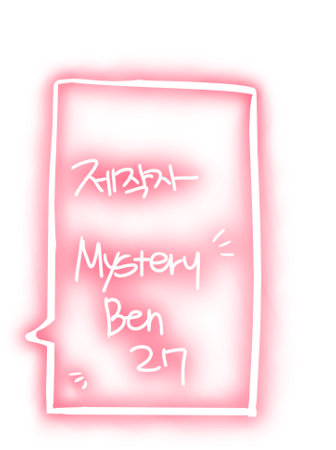 제작자
Mystery
Ben
27